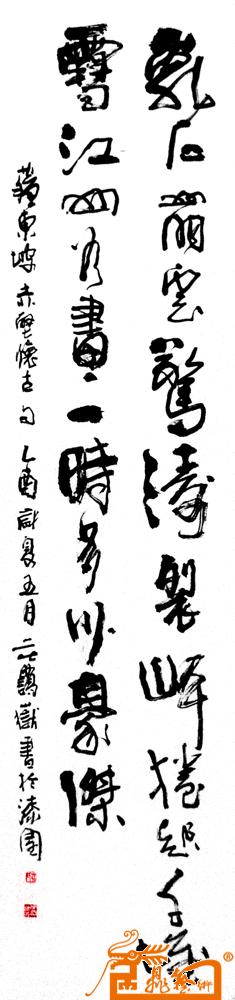 亂石崩雲驚濤裂岸捲起千堆
雪江山如畫一時多少豪傑
蘇東坡赤壁懷古句 乙酉歲夏五月 嶽書於漆園